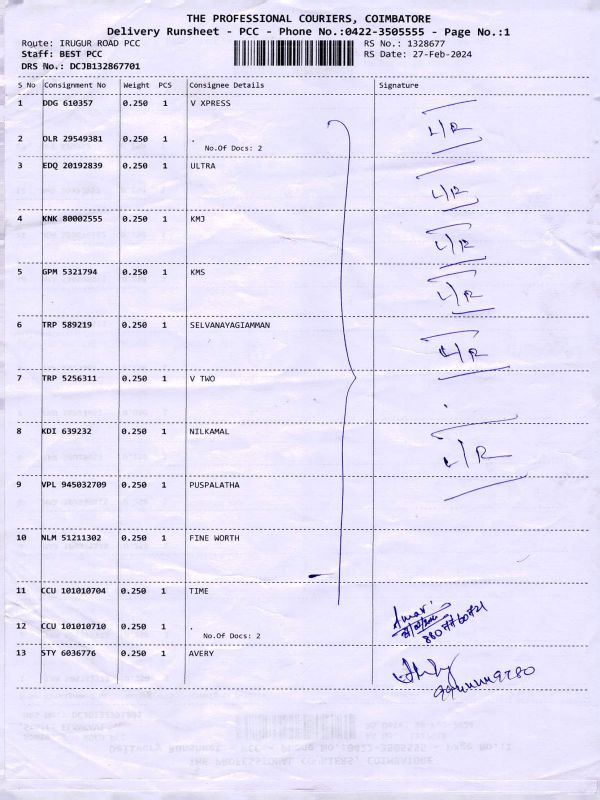 THE PROFESSIONAL COURIERS, COIMBATORE
Delivery Runsheet - PCC - Phone No.:0422-3505555 - Page No.:1
Route: IRUGUR ROAD PCC RS No.: 1328677
Staff: BEST PCC RS Date: 27-Feb-2024
DRS No.: DCJB132867701
S No Consignment No Weight PCS Consignee Details Signature
1 DDG 610357 0.250 1 V XPRESS
L/R
2 OLR 29549381 0.250 1 .
No.Of Docs: 2
3 EDQ 20192839 0.250 1 ULTRA
L/R
4 KNK 80002555 0.250 1 KMJ
L/R
5 GPM 5321794 0.250 1 KMS
L/R
6 TRP 589219 0.250 1 SELVANAYAGIAMMAN
L/R
7 TRP 5256311 0.250 1 V TWO
8 KDI 639232 0.250 1 NILKAMAL
L/R
9 VPL 945032709 0.250 1 PUSPALATHA
10 NLM 51211302 0.250 1 FINE WORTH
11 CCU 101010704 0.250 1 TIME
12 CCU 101010710 0.250 1 .
No.Of Docs: 2
13 STY 6036776 0.250 1 AVERY